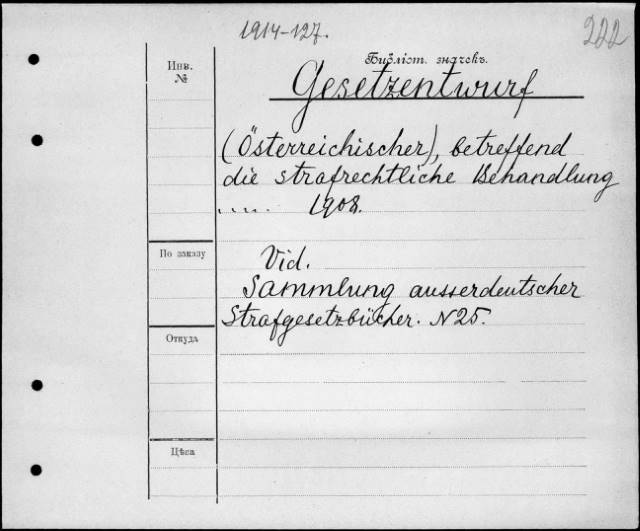 1914-127.
222
Библіот. значекъ.
Инв.
№
Gesetzentwurf
(Österreichischer), betreffend
die strafrechtliche Behandlung
..... 1908.
По заказу
Vid.
Sammlung ausserdeutscher
Strafgesetzbücher. N 25.
Откуда
Цѣна